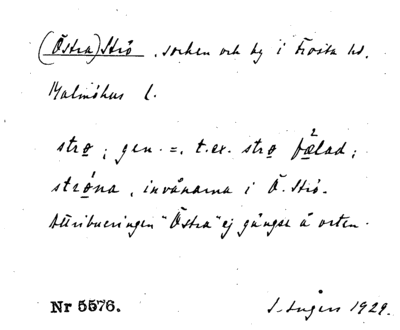 (Östra) Strö, socken och by i Frosta hd,
Malmöhus l.
strọ; gen. =, t.ex. strọ fælad;
strọ́na, invånarna i Ö. Strö.
Attribueringen "Östra" ej gängse å orten.
Nr 5576. I. Ingers 1929.